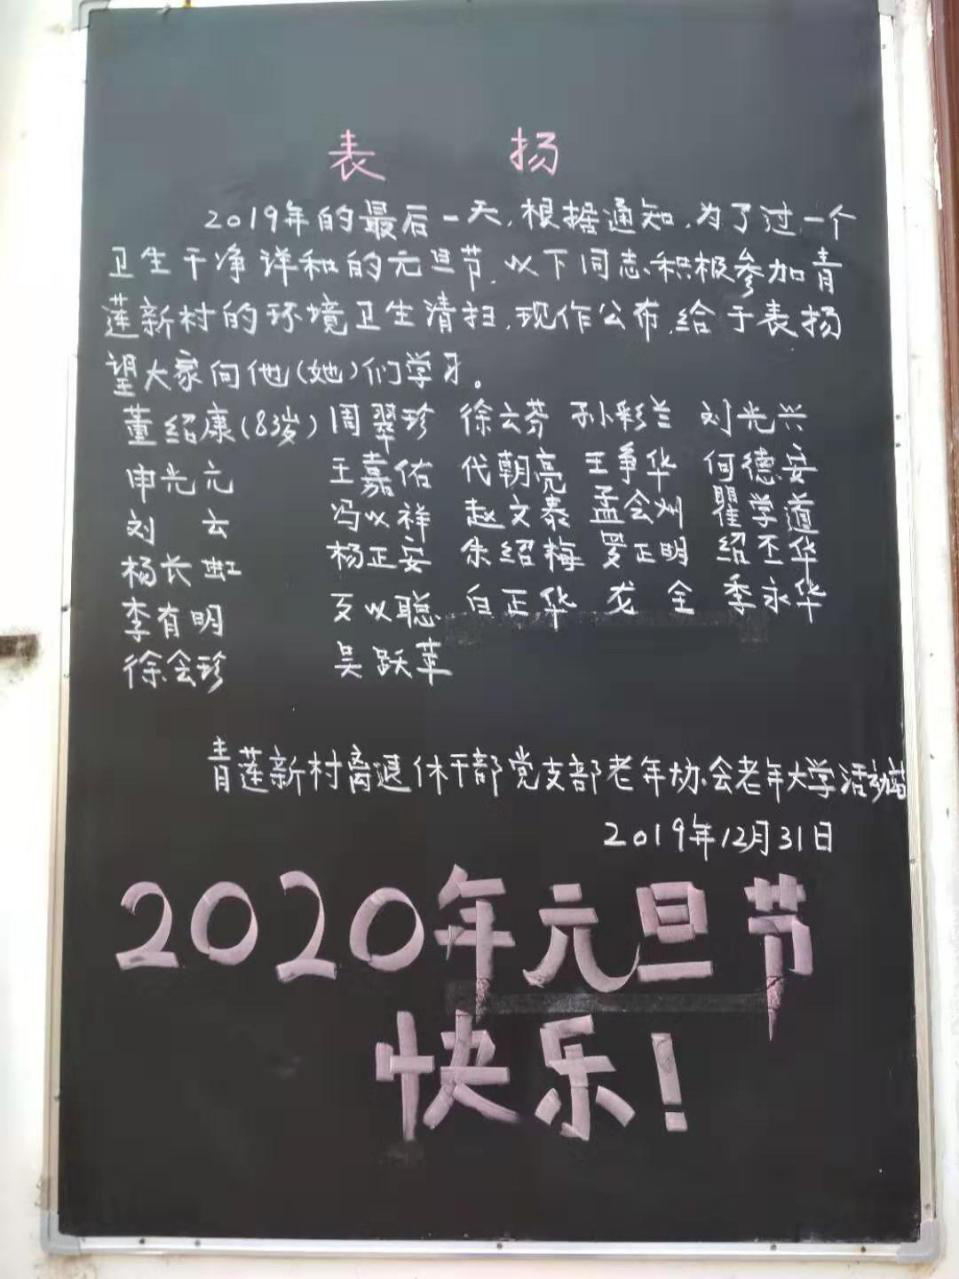 表 扬
2019年的最后一天,根据通知,为了过一个
卫生干净详和的元旦节,以下同志积极参加青
莲新村的环境卫生清扫,现作公布,给于表扬
望大家向他(她)们学习。
董绍康(83岁) 周翠珍 徐云芬 孙彩兰 刘光兴
申光元 王嘉佑 代朝亮 王争华 何德安
刘 云 冯以祥 赵文泰 孟会州 瞿学道
杨长虹 杨正安 朱绍梅 罗正明 绍丕华
李有明 以聪 白正华 龙 全 季永华
徐会珍 吴跃苹
青莲新村离退休干部党支部老年协会老年大学活动站
2019年12月31日
2020年元旦节
快乐!